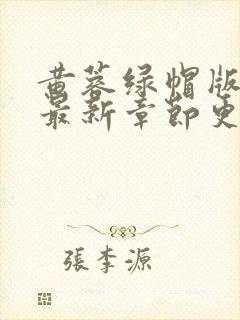 黄蓉绿帽版
最新章节更
張李源